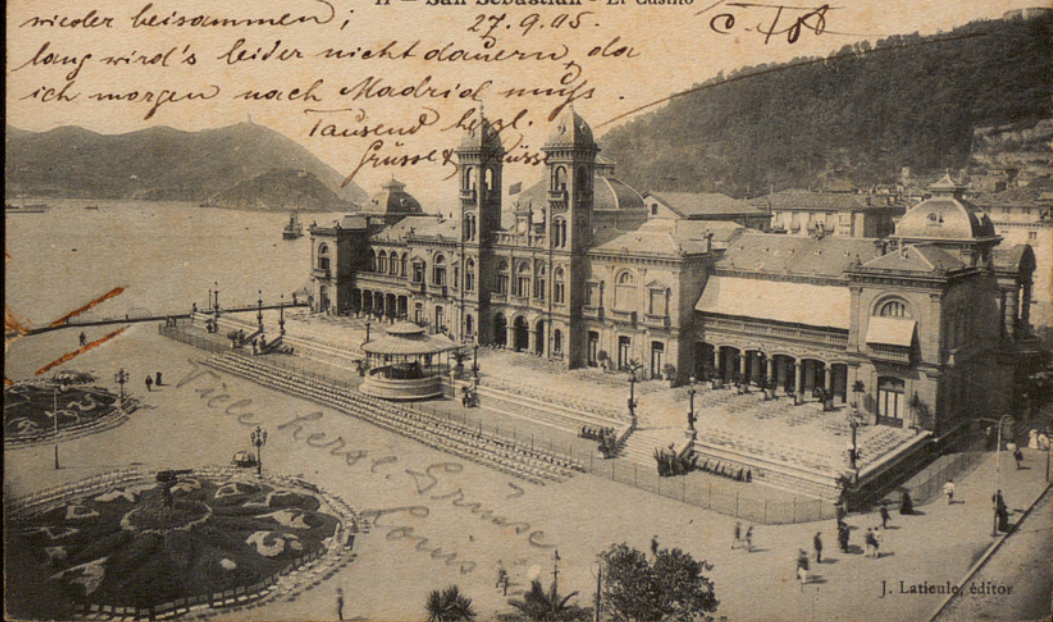 11 - San Sebastian - El Casino
wieder beisammen; 27.9.05.
lang wird's leider nicht dauern, da
ich morgen nach Madrid muß.
Tausend herzl.
Grüsse & Küsse
Viele herzl. Grüsse
Louis
J. Latieule, éditor